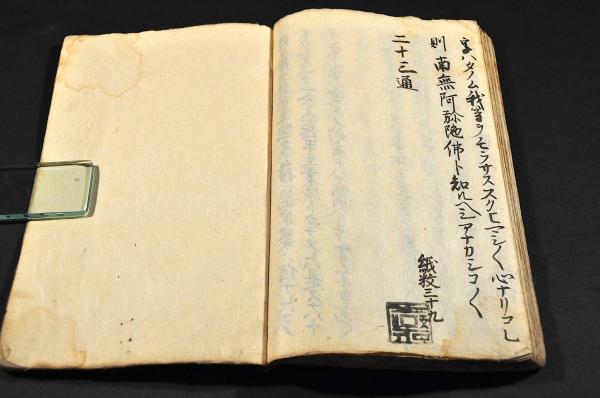 ハタノム我等ヲモラサススクヒマシ〱心ナリコレ
則南無阿弥陀佛ト知ルヘシアナカシコ〱
二十三通
紙数三十九